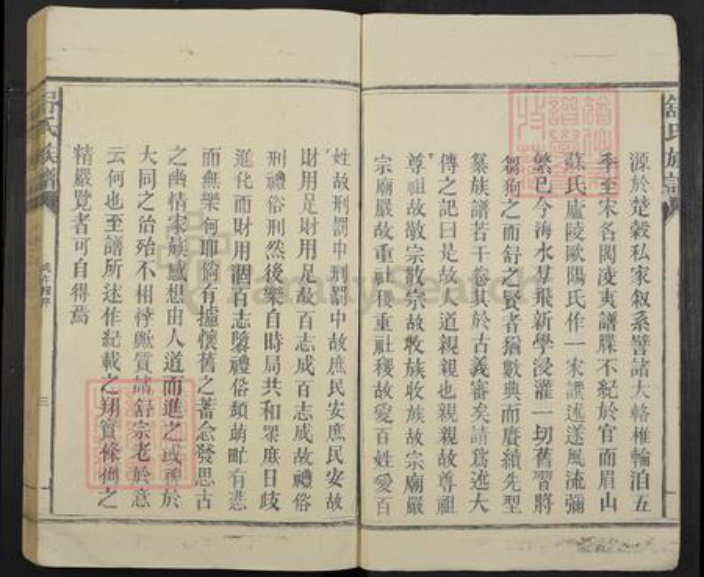 舒氏族譜
源於楚穀私家叙系譬諸大輅椎輪泊五
季至宋名閥凌夷譜牒不紀於官而眉山
蘇氏廬陵歐陽氏作一家譔述遂風流彌
繁已今海水羣飛新學浸灌一切舊習將
芻狗之而舒之賢者猶數典而賡續先型
纂族譜若干卷其於古義審矣請爲迻大
傳之記曰是故人道親親也親親故尊祖
尊祖故敬宗敬宗故收族收族故宗廟嚴
宗廟嚴故重社稷重社稷故愛百姓愛百
姓故刑罰中刑罰中故庶民安庶民安故
財用足財用足故百志成百志成故禮俗
刑禮俗刑然後樂自時局共和眾庶日歧
進化而財用個百志隳禮俗頹萌甿有悲
而無樂何耶倘有攄懷舊之蓄念發思古
之幽情家族感想由人道而進之或禆於
大同之治殆不相悖歟質諸舒宗老於意
云何也至譜所述作紀載之翔實條例之
精嚴覽者可自得焉
舒氏族譜
三
FamilySearch